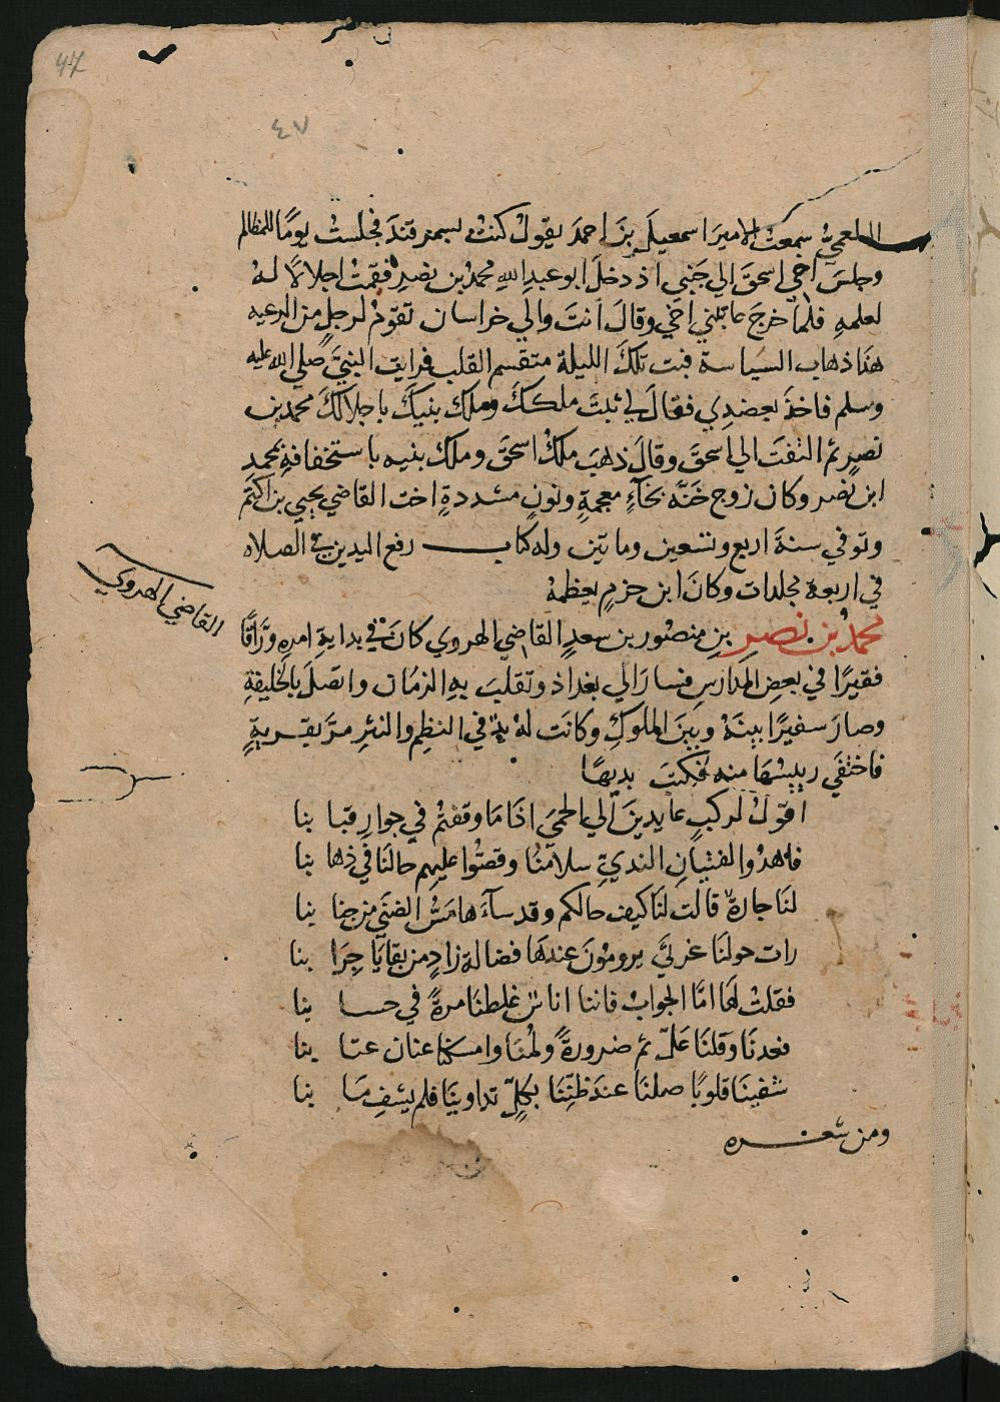 47
٤٧
البلعميُّ سمعتُ الامیرَ اسمعیلَ بنَ احمدَ يقولُ كنتُ بسمرقندَ فجلستُ يومًا للمظالم
وجلسَ اخي اسحقَ الي جَنبي اذ دخلَ ابو عبدِ اللهِ محمدُ بن نصرٍ فقمتُ اجلالًا لهُ
لعلمهِ فلمّا خرجَ عاتبني اخي وقالَ انتَ والي خراسان تقومُ لرجلٍ من الرعيه
هذا ذهاب السياسة فبت تلكَ الليلة متقسم القلب فرايت النبيَّ صلي الله عليه
وسلم فاخذَ بعضدِي فقالَ لي ثبتَ ملككَ وملك بنيكَ باجلالكَ محمد بن
نصرٍ ثم التفتَ الي اسحقَ وقالَ ذهبَ ملكُ اسحقَ وملكُ بنيه باستخفافهِ بمحمدِ
ابن نصر وكان زوج خَنَّه بخآءٍ معجمةٍ ونونٍ مشددةٍ اخت القاضي يحيي بن اكثَم
وتوفي سنةَ اربعٍ وتسعين ومايتين وله كتاب رفع اليدين في الصلاه
في اربعة مجلدات وكانَ ابن حزمٍ يعظمهُ
محمدُ بن نصرِ بنِ منصُور بن سعدٍ القاضي الهروي كانَ في بدايةِ امرِهِ ورَّاقًا
القاضي الهروي
فقيرًا في بعضِ المدَارسِ فسارَ الي بغداذ وتقلبَ بهِ الزمَان واتصَلَ بالخليفةِ
وصارَ سفيرًا بينَهُ وبينَ الملوكِ وكانَت لهُ يدٌ في النظمِ والنثرِ مرَّ بقريةٍ
فاختفَي رييسُهَا منه فكتبَ بديهًا
اقولُ لركبٍ عايدينَ الي الحمَي اذَا مَا وقفتُم في جوارِ قبا بنا
فاهدُوا لفتيانِ النديِّ سلامنُا وقصُّوا عليهم حالنَا في ذها بنا
لنَا جارةٌ قالت لنَا كيف حالكم وقد سآءَهَا مَسُّ الضنَي من جنا بنا
رات حولنَا غرثَي يرومُونَ عندهَا فضالة زادٍ من بقايَا جِرَا بنا
فقلتُ لهَا امَّا الجوابُ فاننا اناسٌ غلطنَا مرةً في حسا بنا
فعدنَا وقلنَا عَلَّ ثم ضرورةً ولُمنَا وامسكنا عنان عتا بنا
شفينَا قلوبًا صملنَا عندَ ظنِّنَا بكلٍّ تداوينَا فلم يشفِ مَا بنا
ومن شعره